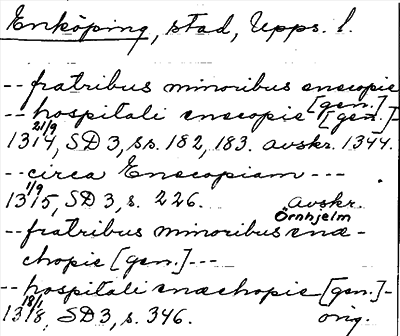 Enköping, stad, Upps. l.
-- fratribus minoribus enecopie [gen.]
-- hospitali enecopie [gen.]-
21/9 1314, SD 3, ss. 182, 183. avskr. 1344.
-- circa Enecopiam ---
1/9 1315, SD 3, s. 226. avskr. Örnhjelm
-- fratribus minoribus enæ-
chopie [gen.] ---
-- hospitali enæchopie [gen.]-
18/1 1318, SD 3, s. 346. orig.